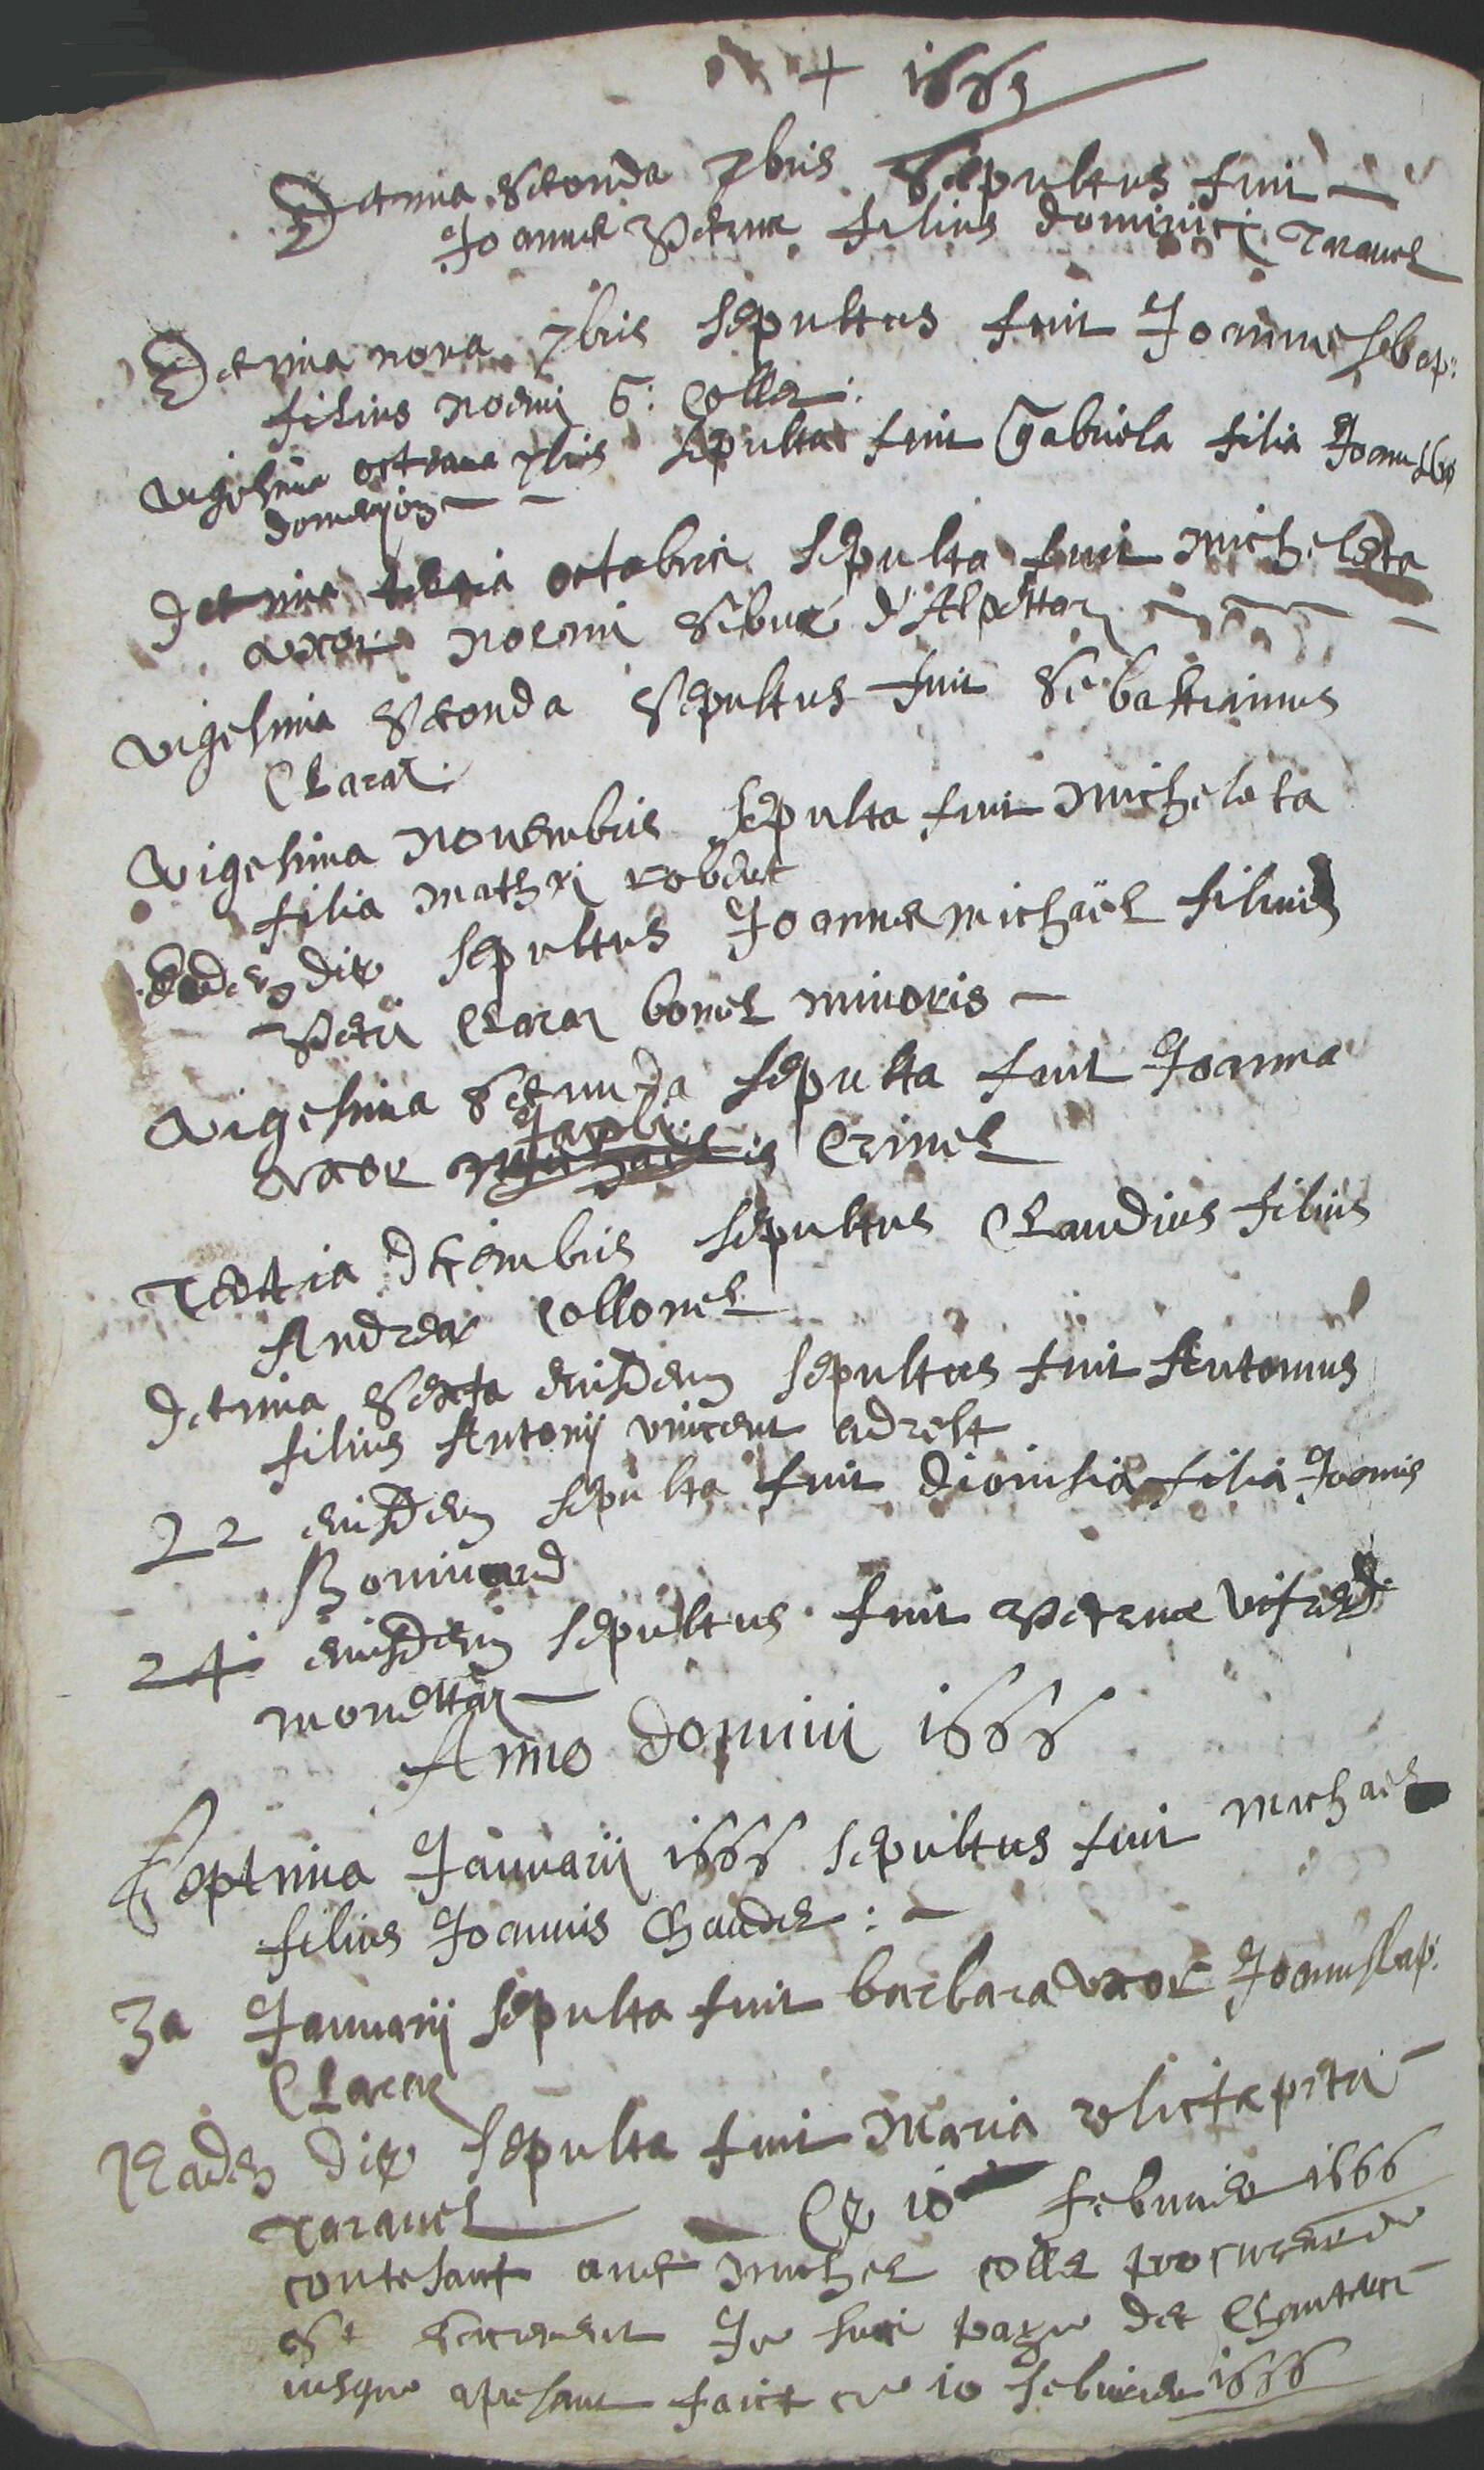 + 1665
Decima secunda 7bris sepultus fuit
Joannes Petrus filius dominici Taravel
Decima nona 7bris sepultus fuit Joannes bap:
filius noemi G: Colla:
vigesima octava 7bris sepulta fuit Gabriela filia Joannis
domenjoz
decima tertia octobris sepulta fuit micheleta
uxor noemi Sibue d'Alpettaz
vigesima secunda sepultus fuit Sebastianus
Claraz
vigesima novembris sepulta fuit micheleta
filia mathei robert
Eadem die sepultus Joannes michaël filius
Petri Claraz bonel minoris
vigesima secunda sepulta fuit Joanna
Jacobi
uxor Crinel
Tertia decembris sepultus Claudius filius
Andreae Collonel
decima sexta eiusdem sepultus fuit Antonius
filius Antonij vincent adrest
22 eiusdem sepulta fuit dionisia filia Joannis
Bonivard
24 eiusdem sepultus fuit Petrus vifred
monettaz
Anno domini 1666
Septima Januarii 1666 sepultus fuit michael
filius Joannis Chaudel:
3a Januarij sepulta fuit barbara uxor Joannis bap:
Claraz
Eadem die sepulta fuit Maria relicta petri
Taravel Ce 10 februier 1666
contesant avec michel colla procureur de
St vincent Je suis paye des Chanteri
iusque apresant faict ce 10 februier 1666